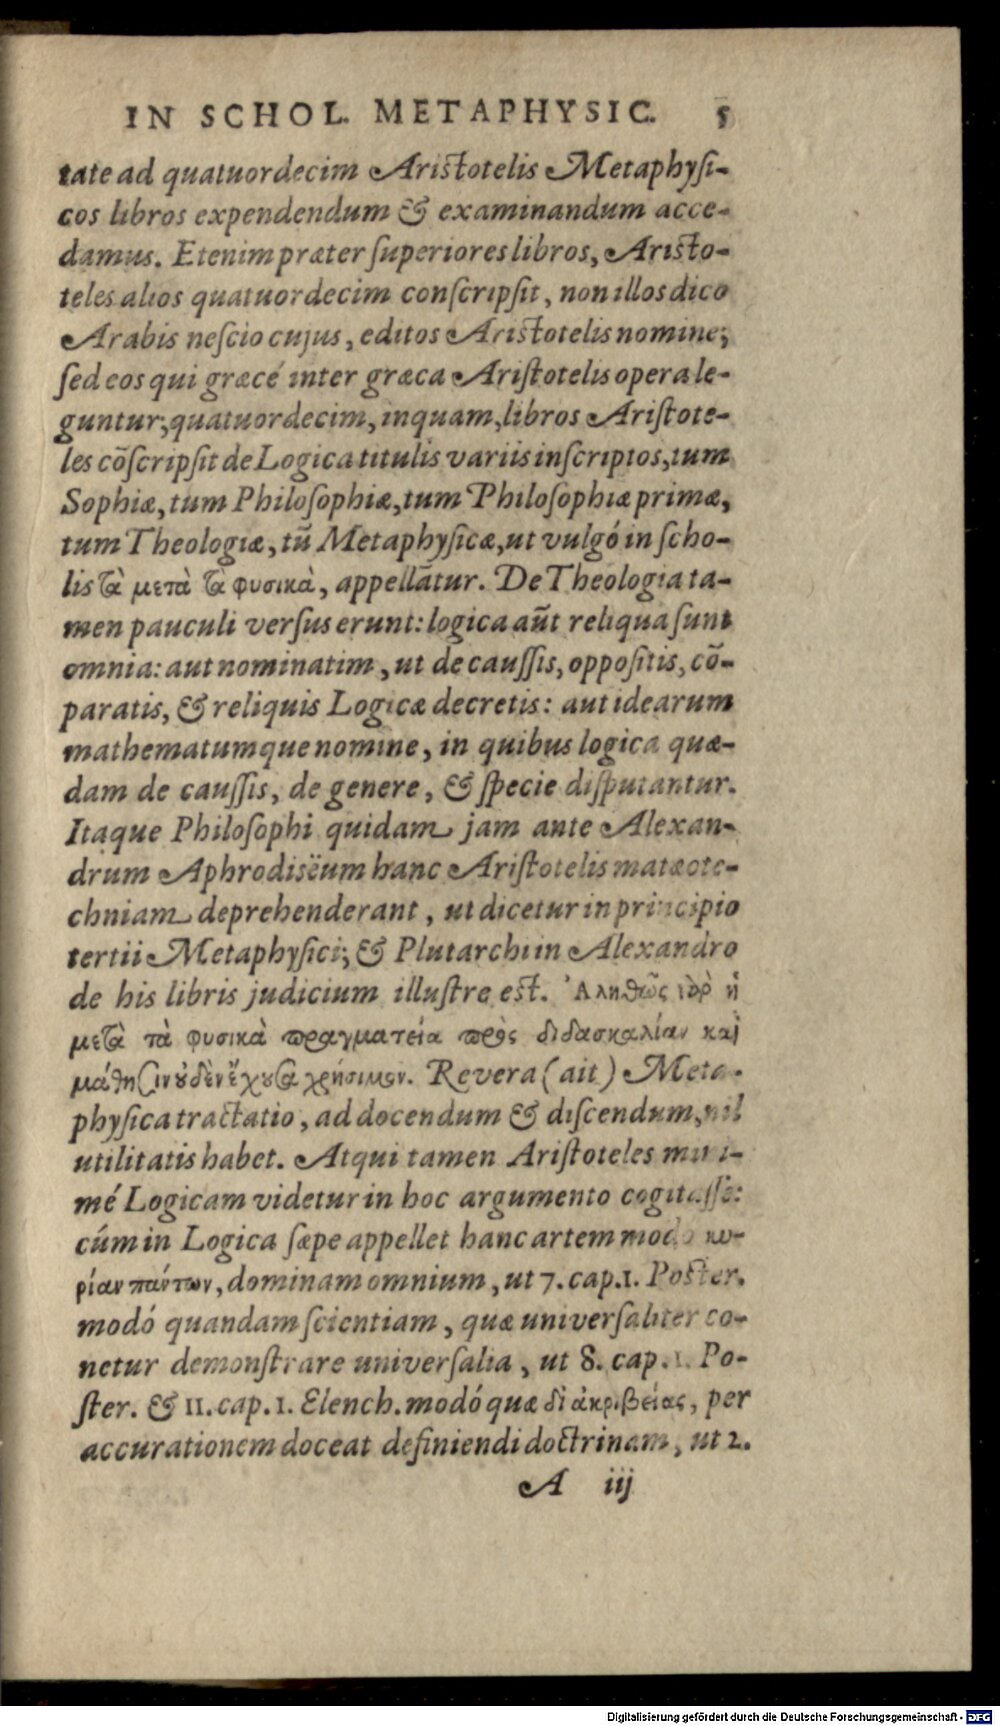 IN SCHOL. METAPHYSIC. 5
tate ad quatuordecim Aristotelis Metaphysi-
cos libros expendendum & examinandum acce-
damus. Etenim præter superiores libros, Aristo-
teles alios quatuordecim conscripsit, non illos dico
Arabis nescio cujus, editos Aristotelis nomine;
sed eos qui græcé inter græca Aristotelis opera le-
guntur; quatuordecim, inquam, libros Aristote-
les cõscripsit de Logica titulis variis inscriptos, tum
Sophiæ, tum Philosophiæ, tum Philosophiæ primæ,
tum Theologiæ, tũ Metaphysicæ, ut vulgó in scho-
lis τὰ μετὰ τὰ φυσικὰ, appellãtur. De Theologia ta-
men pauculi versus erunt: logica aũt reliqua sunt
omnia: aut nominatim, ut de caussis, oppositis, cõ-
paratis, & reliquis Logicæ decretis: aut idearum
mathematumque nomine, in quibus logica quæ-
dam de caussis, de genere, & specie disputantur.
Itaque Philosophi quidam jam ante Alexan-
drum Aphrodisëum hanc Aristotelis matæote-
chniam deprehenderant, ut dicetur in principio
tertii Metaphysici; & Plutarchi in Alexandro
de his libris judicium illustre est. Ἀληθῶς γὸρ ἡ
μετὰ τὰ φυσικὰ πραγματεία πρὸς διδασκαλίαν καὶ
μάθησιν οὐδὲν ἔχουσα χρήσιμον. Revera (ait) Meta-
physica tractatio, ad docendum & discendum, nil
utilitatis habet. Atqui tamen Aristoteles mini-
mé Logicam videtur in hoc argumento cogitasse:
cúm in Logica sæpe appellet hanc artem modo κυ-
ρίαν πάντων, dominam omnium, ut 7. cap. 1. Poster.
modó quandam scientiam, quæ universaliter co-
netur demonstrare universalia, ut 8. cap. 1. Po-
ster. & 11. cap. 1. Elench. modó quæ δι ἀκριβείας, per
accurationem doceat definiendi doctrinam, ut 2.
A iij
Digitalisierung gefördert durch die Deutsche Forschungsgemeinschaft - DFG